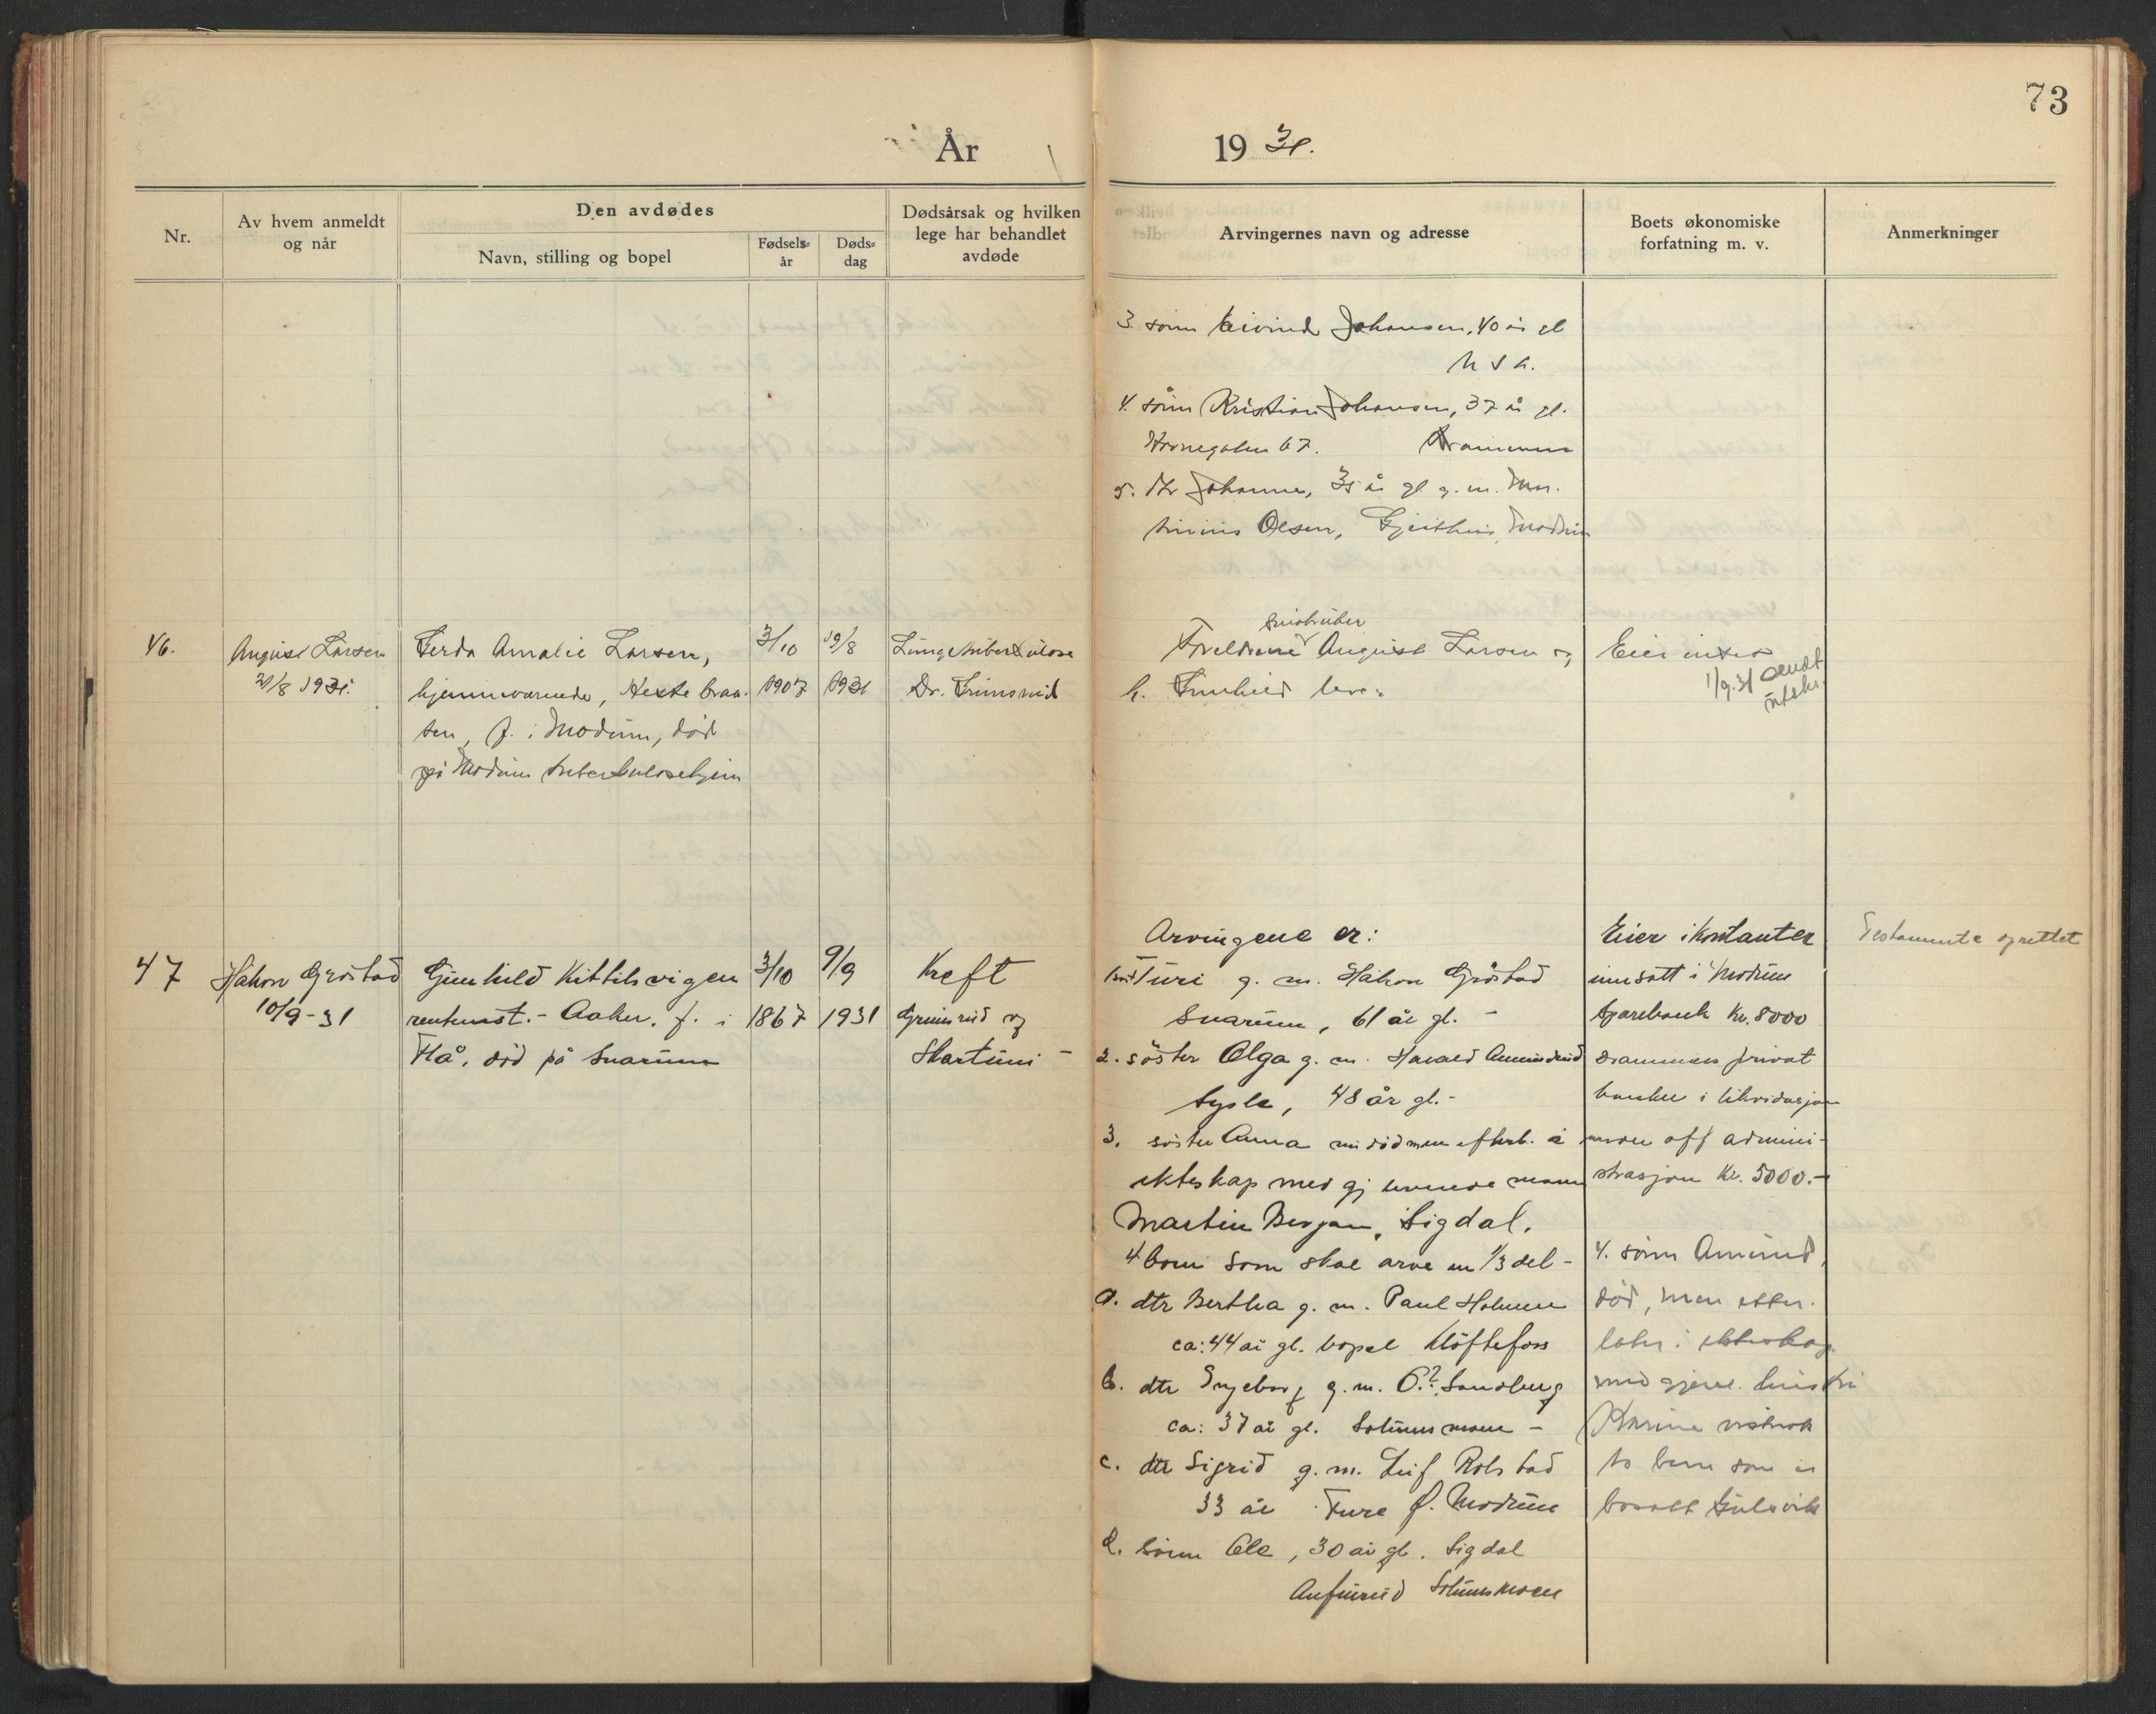 73
År 1931.
Nr.
Av hvem anmeldt
og når
Den avdødes
Navn, stilling og bopel
Fødsels-
år
Døds-
dag
Dødsårsak og hvilken
lege har behandlet
avdøde
Arvingernes navn og adresse
Boets økonomiske
forfatning m. v.
Anmerkninger
3. sønn Eivind Johansen, 40 år gl
U S A.
4. sønn Kristian Johansen, 37 år gl.
67. Drammen
5. dtr Johanne, 35 år gl. g. m.
Olsen, Geithus, Modum
46.
August Larsen
21/8 1931.
Gerda Amalie Larsen,
hjemmeværende, Heste braa-
ten, f. i Modum, död
på Modum tuberkulosehjem
3/10
1907
19/8
1931
Lungetuberkulose
Dr. Grimsrud
Foreldrene August Larsen og
h. Gunhild lever
Eier intet
1/9.31 sendt
47
Håkon Gröstad
10/9-31
Gunhild Kittilsvigen
rentenist. - Aaker. f. i
Flå, död på Snarum
3/10
1867
9/9
1931
Kreft
Grimsrud og
Skartum -
Arvingene er:
1. Turi g. m. Håkon Gröstad
Snarum, 61 år gl. -
2. söster Olga g. m. Harald Amundrud
Sysle, 48 år gl. -
3. söster Anna nu död men efterl. i
ekteskap med gj levende mann
Martin Bergan, Sigdal.
4 barn som skal arve en 1/3 del -
a. dtr Bertha g. m. Paul Holmen
ca: 44 år gl. bopel Klöftefoss
b. dtr Ingeborg g. m. O.? Sandberg
ca: 37 år gl. Solumsmoen -
c. dtr Sigrid g. m. Leif Rolstad
33 år Fure Ø. Modum
d. sönn Ole, 30 år gl. Sigdal
Anfinrud Solumsmoen
Eier i kontanter
innsatt i Modum
Sparebank Kr. 8000
Drammens privat
banken i likvidasjon
under off admini-
strasjon Kr. 5000.-
4. sönn Amund,
död, men etter-
later i ekteskap
med gjenl. hustru
Karine
to barn som er
bosatt Gulsvik
Testamente oprettet